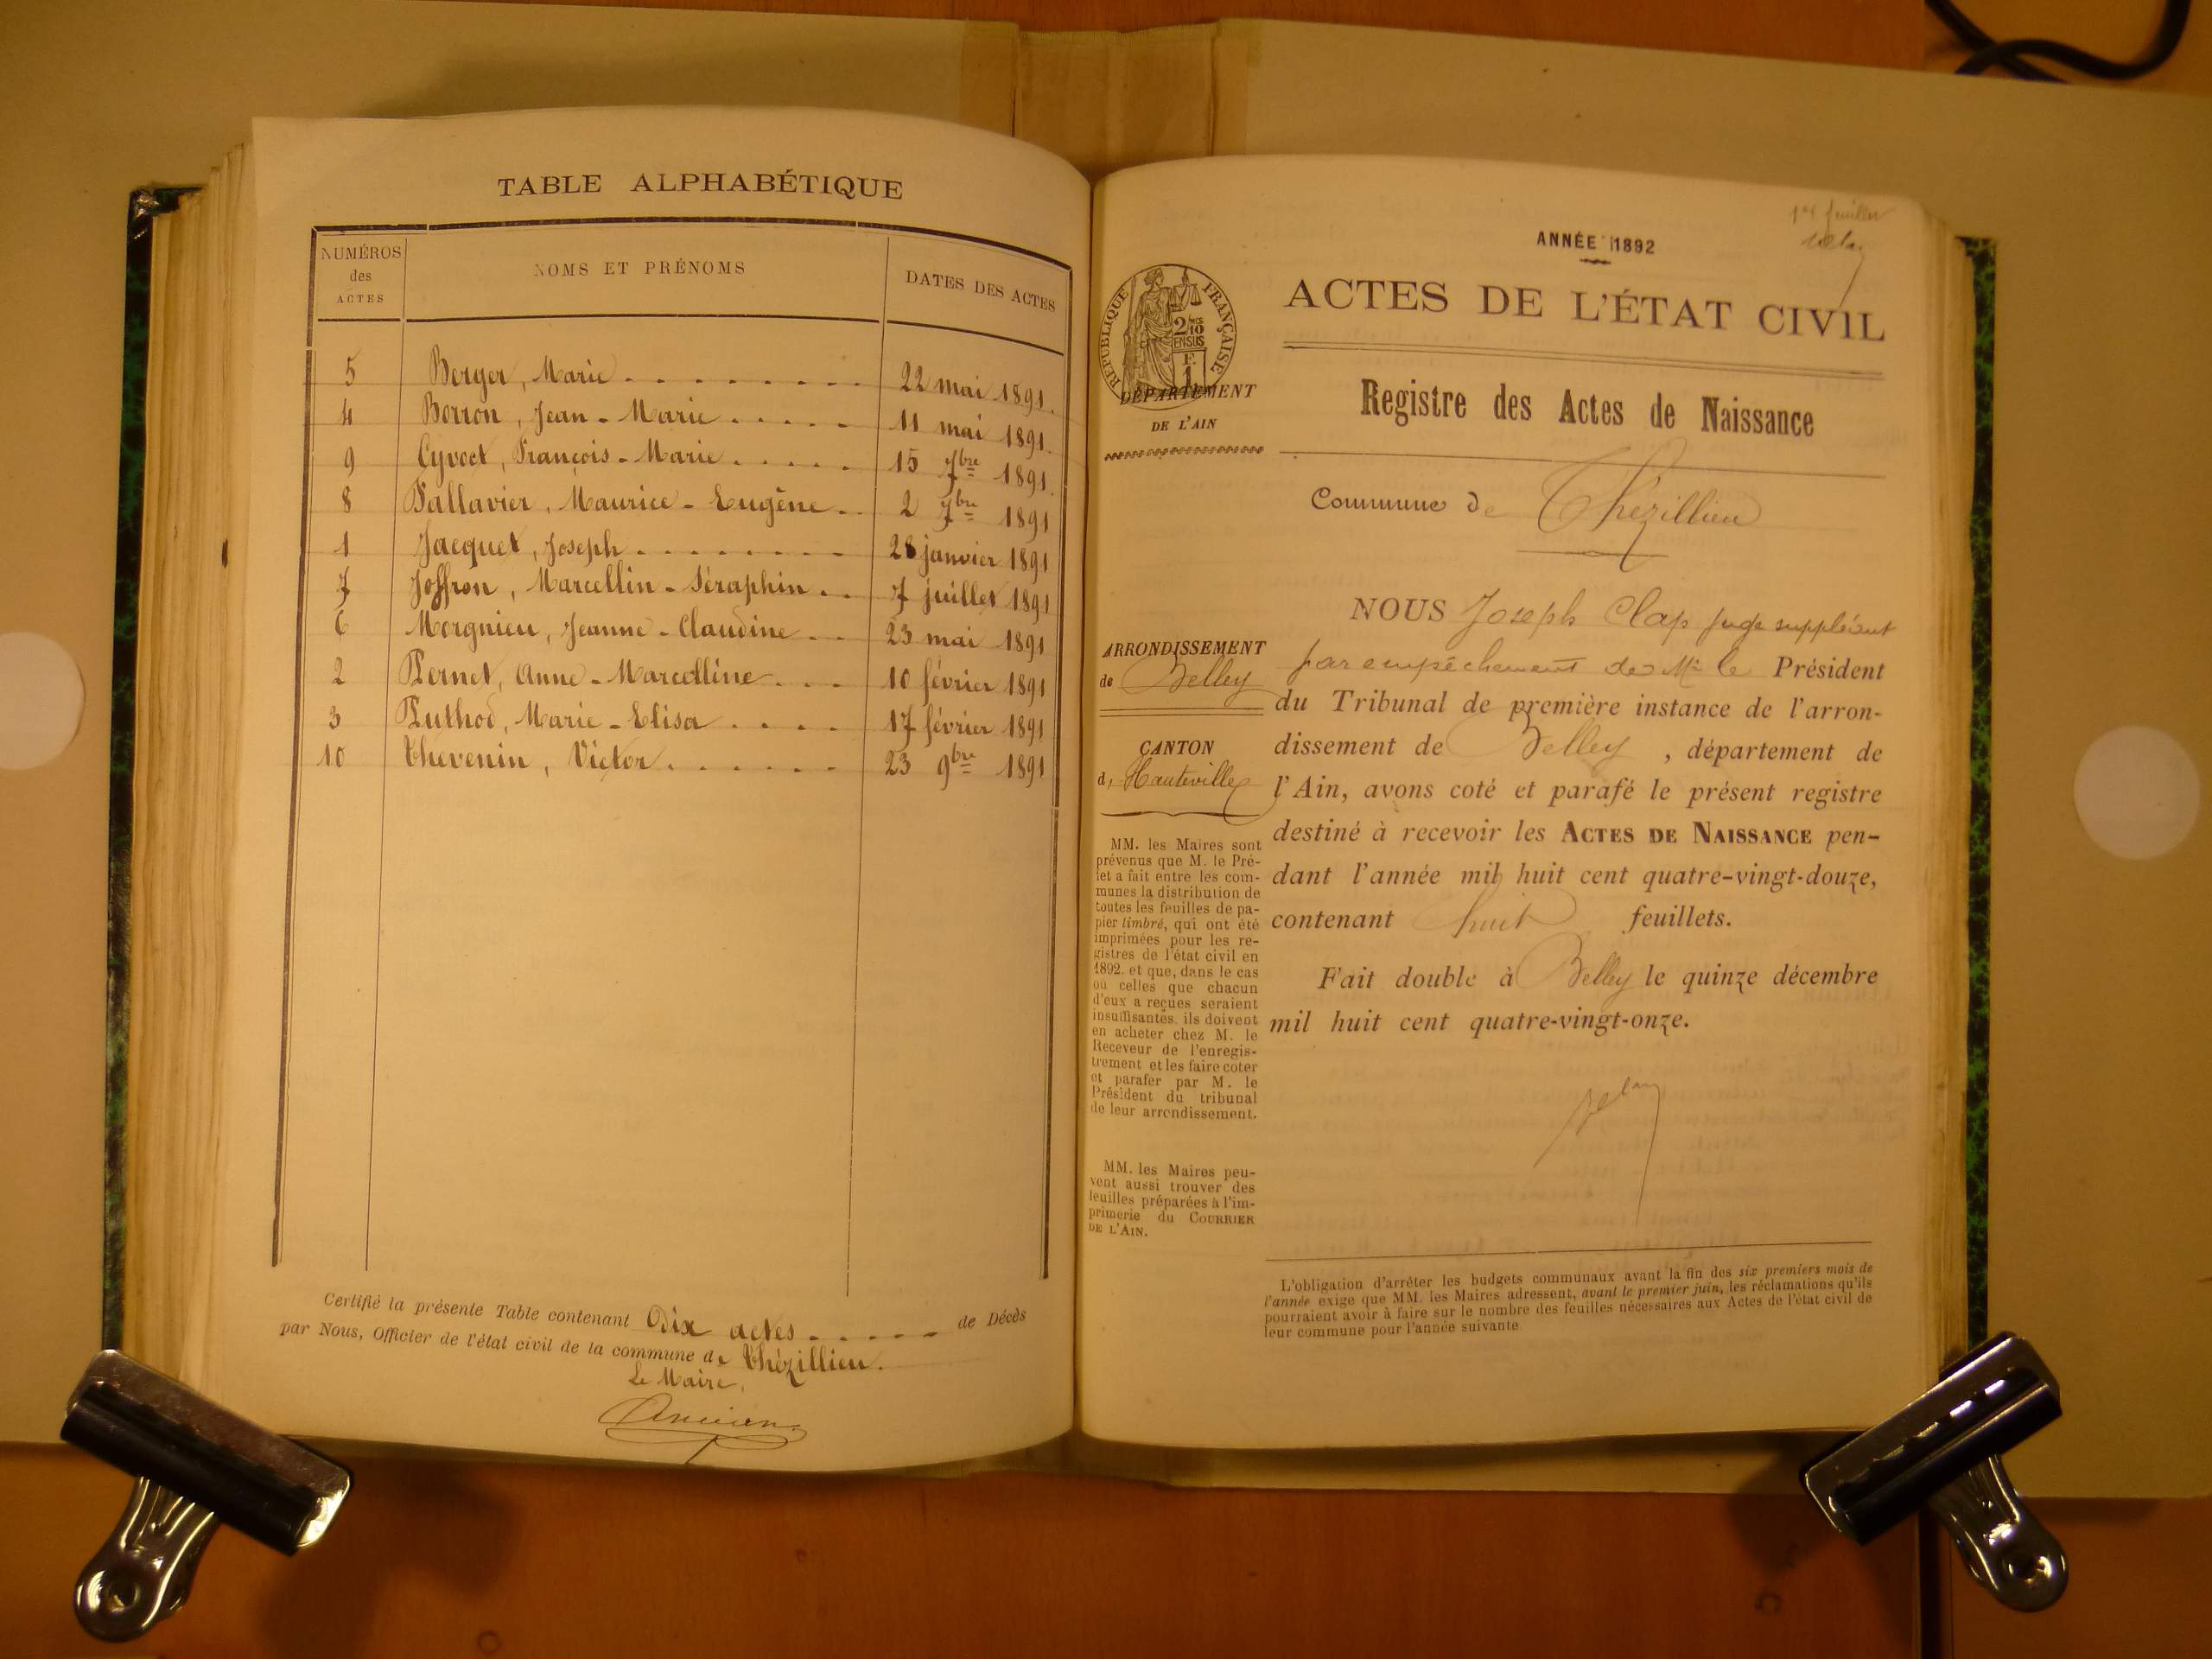 TABLE ALPHABÉTIQUE
NUMÉROS des ACTES
NOMS ET PRÉNOMS
DATES DES ACTES
5 Berger, Marie 22 mai 1891.
4 Borron, Jean-Marie 11 mai 1891.
9 Cyvoct, François-Marie 15 7bre 1891.
8 Fallavier, Maurice-Eugène 2 7bre 1891
1 Jacquet, Joseph 28 janvier 1891
7 Joffron, Marcellin-Séraphin 7 juillet 1891
6 Morgnieu, Jeanne-Claudine 23 mai 1891
2 Pernet, Anne-Marcelline 10 février 1891
3 Puthod, Marie-Elisa 17 février 1891
10 Thevenin, Victor 23 9bre 1891
Certifié la présente Table contenant Dix actes de Décès
par Nous, Officier de l'état civil de la commune de Thézillieu.
Le Maire,
1er feuillet
ANNÉE 1892
ACTES DE L'ÉTAT CIVIL
RÉPUBLIQUE FRANÇAISE
2/10 EN SUS
F. 1
DÉPARTEMENT
DE L'AIN
Registre des Actes de Naissance
Commune de Thézillieu
ARRONDISSEMENT
de Belley
CANTON
d'Hauteville
NOUS Joseph Clap juge suppléant
par empêchement de Mr le Président
du Tribunal de première instance de l'arron-
dissement de Belley, département de
l'Ain, avons coté et parafé le présent registre
destiné à recevoir les ACTES DE NAISSANCE pen-
dant l'année mil huit cent quatre-vingt-douze,
contenant huit feuillets.
Fait double à Belley le quinze décembre
mil huit cent quatre-vingt-onze.
MM. les Maires sont
prévenus que M. le Pré-
fet a fait entre les com-
munes la distribution de
toutes les feuilles de pa-
pier timbré, qui ont été
imprimées pour les re-
gistres de l'état civil en
1892, et que, dans le cas
où celles que chacun
d'eux a reçues seraient
insuffisantes, ils doivent
en acheter chez M. le
Receveur de l'enregis-
trement et les faire coter
et parafer par M. le
Président du tribunal
de leur arrondissement.
MM. les Maires peu-
vent aussi trouver des
feuilles préparées à l'im-
primerie du COURRIER
DE L'AIN.
L'obligation d'arrêter les budgets communaux avant la fin des six premiers mois de
l'année exige que MM. les Maires adressent, avant le premier juin, les réclamations qu'ils
pourraient avoir à faire sur le nombre des feuilles nécessaires aux Actes de l'état civil de
leur commune pour l'année suivante